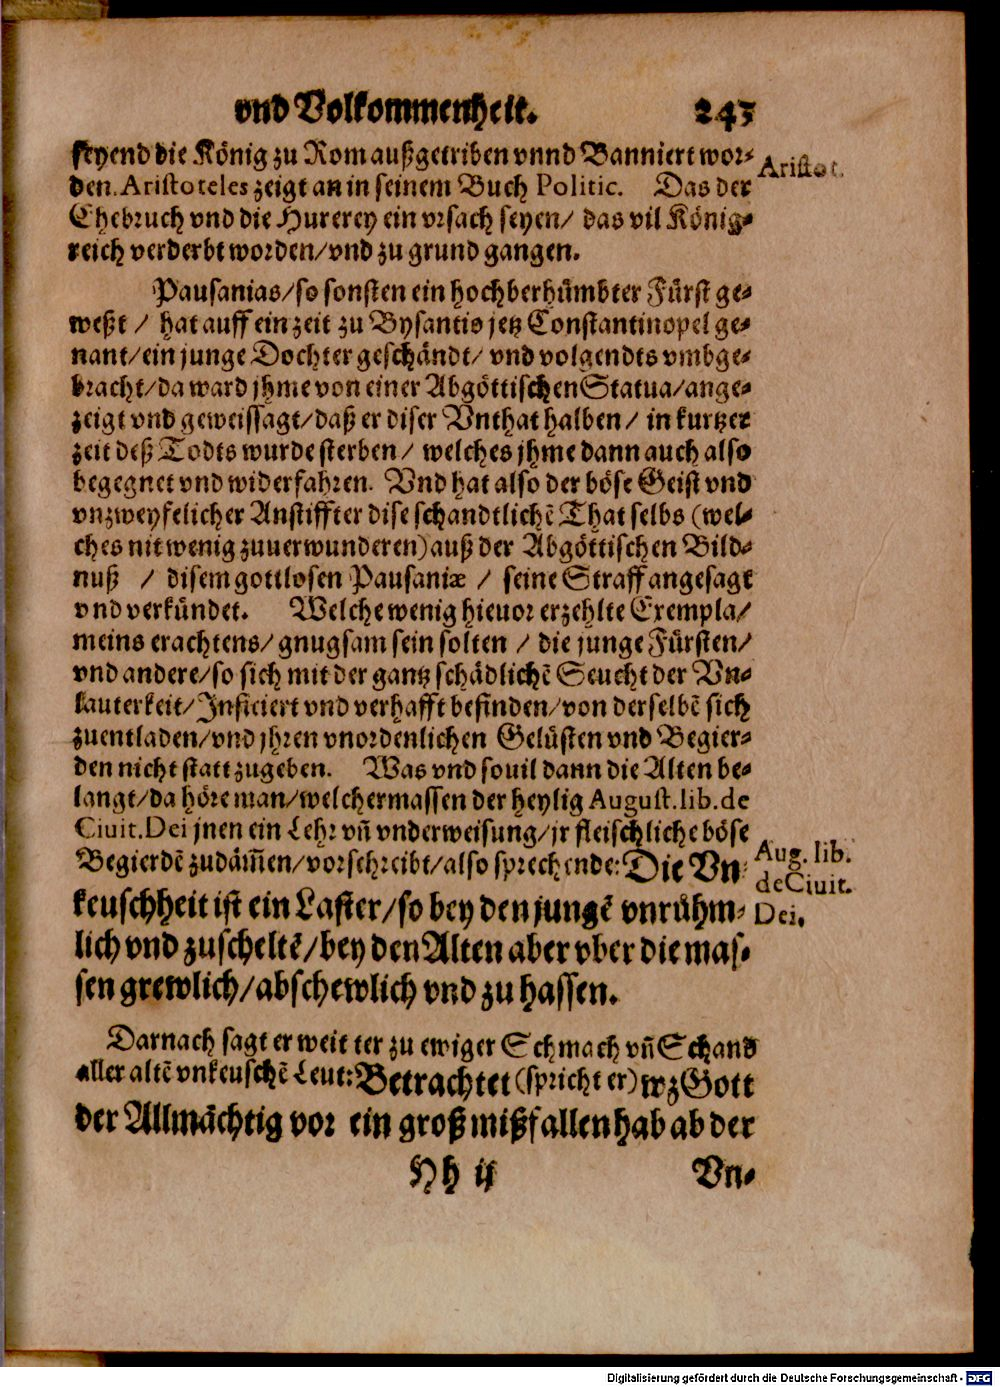 vnd Volkommenheit. 243
seyend die König zu Rom außgetriben vnnd Banniert wor-
den. Aristoteles zeigt an in seinem Buch Politic. Das der
Ehebruch vnd die Hurerey ein vrsach seyen/ das vil König-
reich verderbt worden/ vnd zu grund gangen.
Aristot.
Pausanias/ so sonsten ein hochberhümbter Fürst ge-
weßt / hat auff ein zeit zu Bysantio jetz Constantinopel ge-
nant/ ein junge Dochter geschändt/ vnd volgendts vmbge-
bracht/ da ward jhme von einer Abgöttischen Statua/ ange-
zeigt vnd geweissagt/ daß er diser Vnthat halben / in kurtzer
zeit deß Todts wurde sterben / welches jhme dann auch also
begegnet vnd widerfahren. Vnd hat also der böse Geist vnd
vnzweyfelicher Anstiffter dise schandtlichē That selbs (wel-
ches nit wenig zuuerwunderen) auß der Abgöttischen Bild-
nuß / disem gottlosen Pausaniæ / seine Straff angesagt
vnd verkündet. Welche wenig hieuor erzehlte Exempla/
meins erachtens/ gnugsam sein solten / die junge Fürsten/
vnd andere/ so sich mit der gantz schädlichē Seucht der Vn-
lauterkeit/ Inficiert vnd verhafft befinden/ von derselbē sich
zuentladen/ vnd jhren vnordenlichen Gelüsten vnd Begier-
den nicht statt zugeben. Was vnd souil dann die Alten be-
langt/ da höre man/ welchermassen der heylig August. lib. de
Ciuit. Dei jnen ein Lehr vñ vnderweisung/ jr fleischliche böse
Begierdē zudäm̃en/ vorschreibt/ also sprechende: Die Vn-
keuschheit ist ein Laster/ so bey den jungē vnrühm-
lich vnd zuscheltē/ bey den Alten aber vber die mas-
sen grewlich/ abschewlich vnd zu hassen.
Aug. lib.
de Ciuit.
Dei.
Darnach sagt er weitter zu ewiger Schmach vñ Schand
aller altē vnkeuschē Leut: Betrachtet (spricht er) wz Gott
der Allmächtig vor ein groß mißfallen hab ab der
Hh ij Vn-
Digitalisierung gefördert durch die Deutsche Forschungsgemeinschaft - DFG